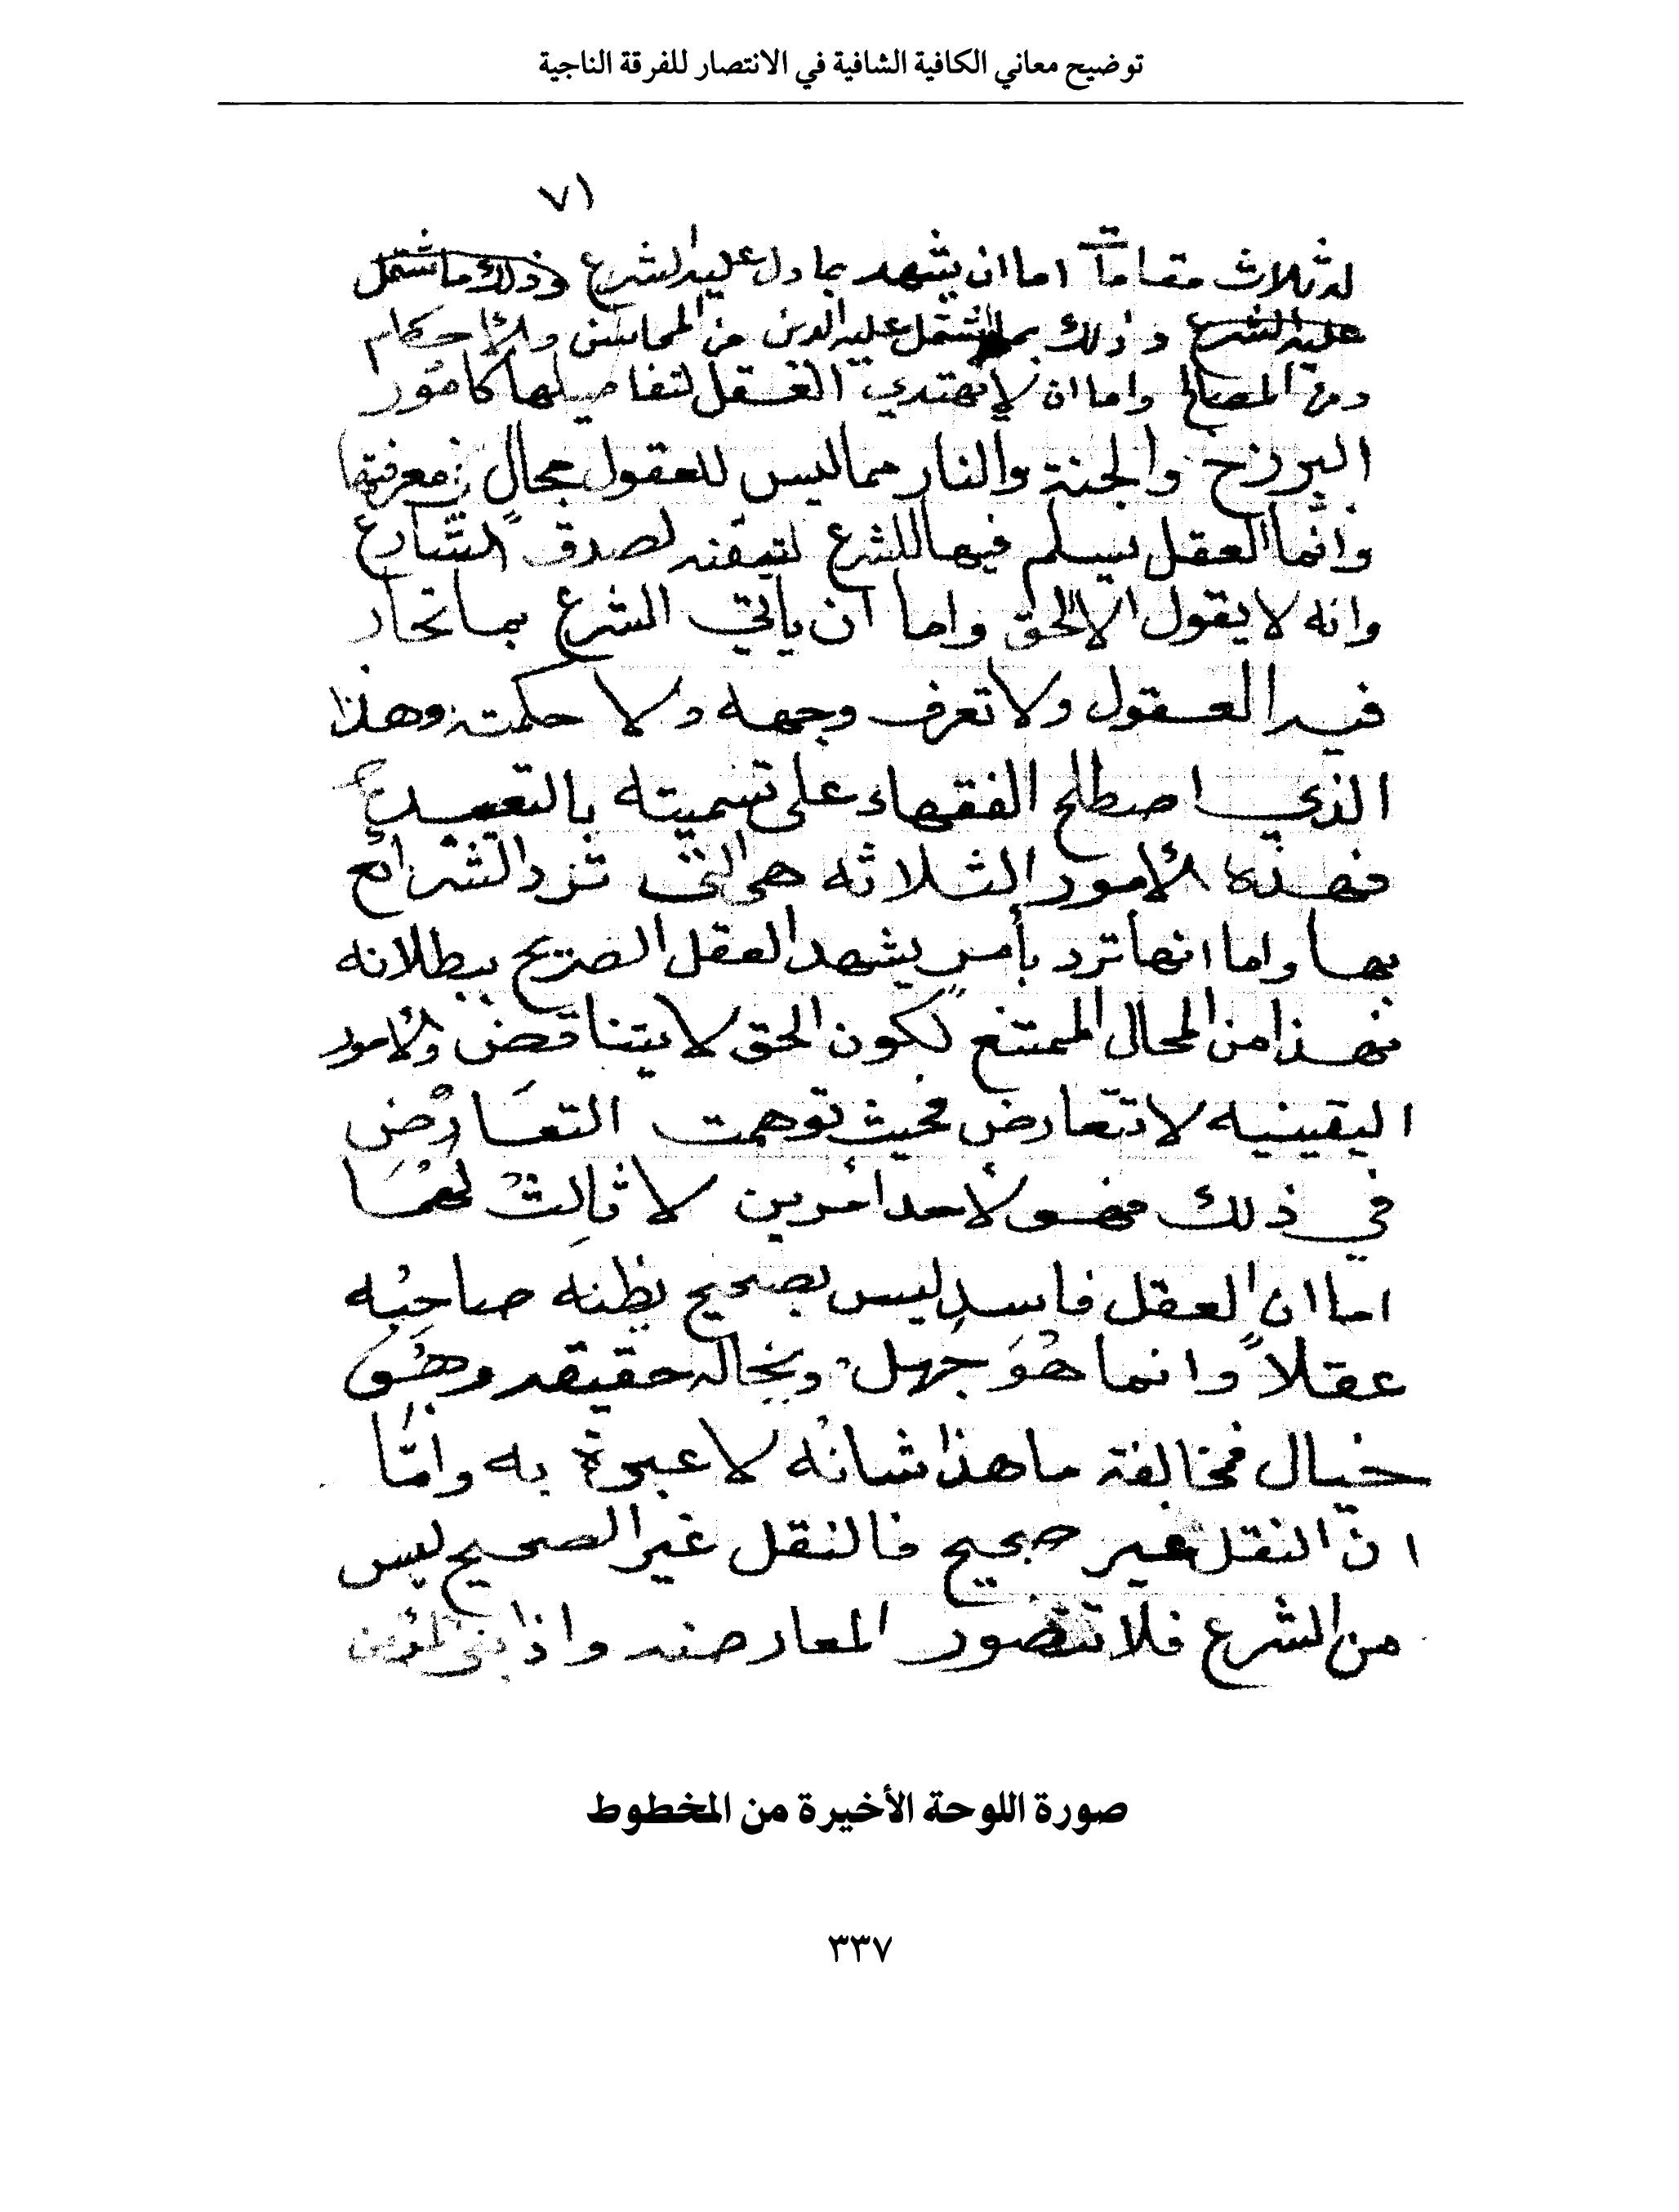 توضيح معاني الكافية الشافية في الانتصار للفرقة الناجية
٧١
له ثلاث مقامات اما ان يشهد بما دل عليه الشرع وذلك ما اشتمل
عليه الشرع وذلك بما اشتمل عليه الدين من المحاسن والاحكام
ومن المصالح واما ان لا تهتدي العقل لتفاصيلها كامور
البرزخ والجنة والنار مما ليس للعقول مجال في معرفتها
وانما العقل يسلم فيها للشرع لتيقنه لصدق الشارع
وانه لا يقول الا الحق واما ان ياتي الشرع بما تحار
فيه العقول ولا تعرف وجهه ولا حكمته وهذا
الذي اصطلح الفقهاء على تسميته بالتعبدي
فهذه الامور الثلاثه هي التي ترد الشرائع
بها واما انها ترد بأمرٍ يشهد العقل الصريح ببطلانه
فهذا من المحال الممتنع لكون الحق لا يتناقض والامور
اليقينيه لا تتعارض فحيث توهمت التعَارُض
في ذلك فهو لأحد أمرين لا ثالِثْ لهُمَا
اما ان العقل فاسدٍ ليس بصحيح يظنه صاحبُه
عقلاً وانما هُوَ جهل وبخاله حقيقه وهُو
خيال فمخالفة ما هذا شانه لا عبرة به وامَّا
انّ النقل غير صحيح فالنقل غير الصحيح ليس
من الشرع فلا تتصور المعارضه واذا
صورة اللوحة الأخيرة من المخطوط
٣٣٧